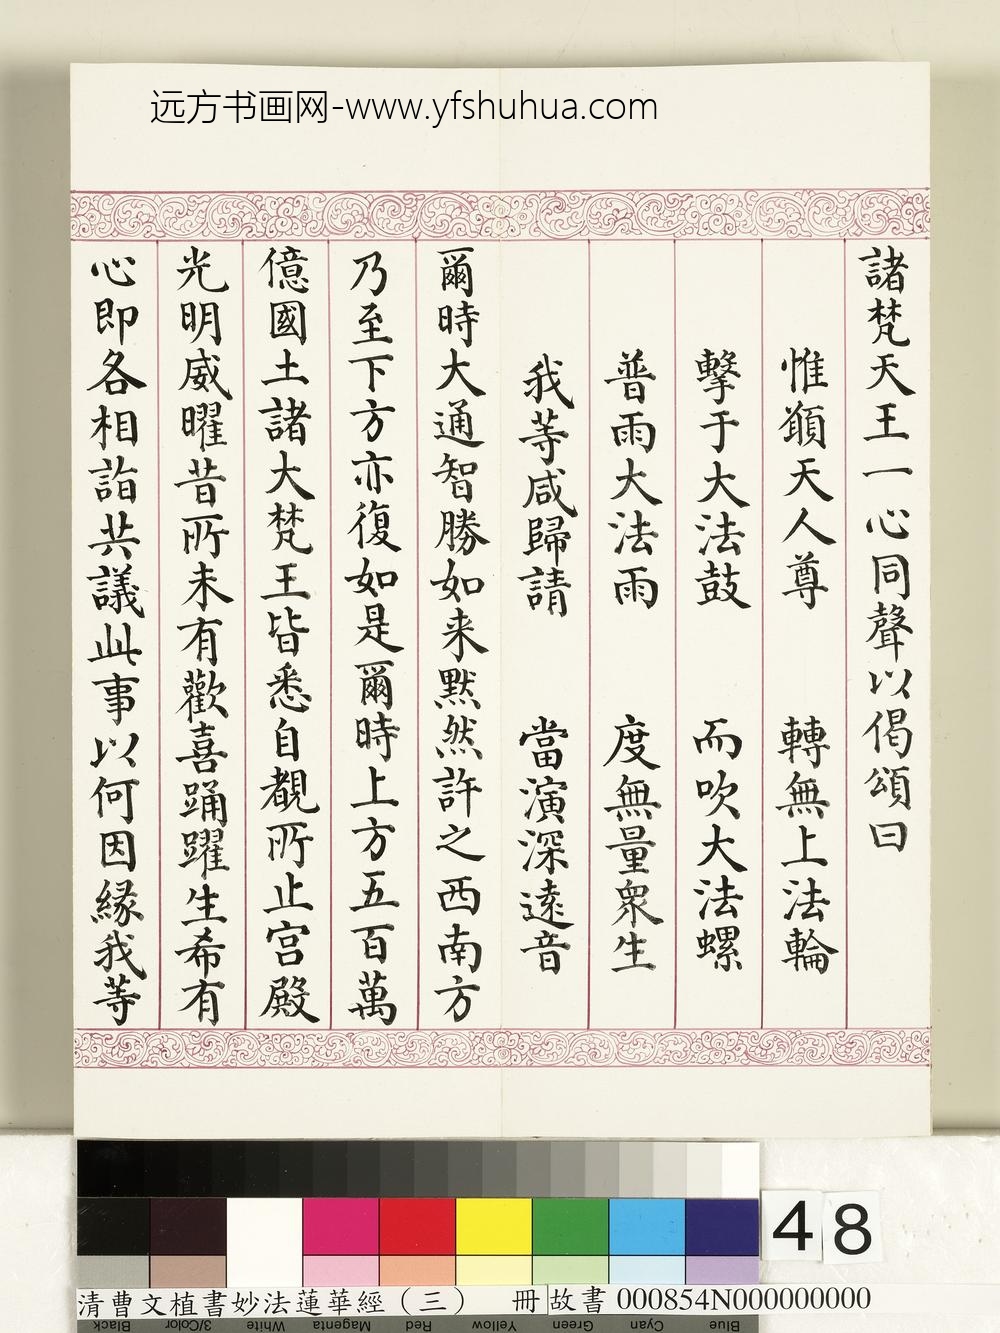 远方书画网-www.yfshuhua.com
諸梵天王一心同聲以偈頌曰
惟願天人尊　轉無上法輪
擊于大法鼓　而吹大法螺
普雨大法雨　度無量衆生
我等咸歸請　當演深遠音
爾時大通智勝如来默然許之西南方
乃至下方亦復如是爾時上方五百萬
億國土諸大梵王皆悉自覩所止宮殿
光明威曜昔所未有歡喜踊躍生希有
心即各相詣共議此事以何因緣我等
48
清曹文植書妙法蓮華經（三）　冊 故書 000854N000000000
Black 3/Color White Magenta Red Yellow Green Cyan Blue